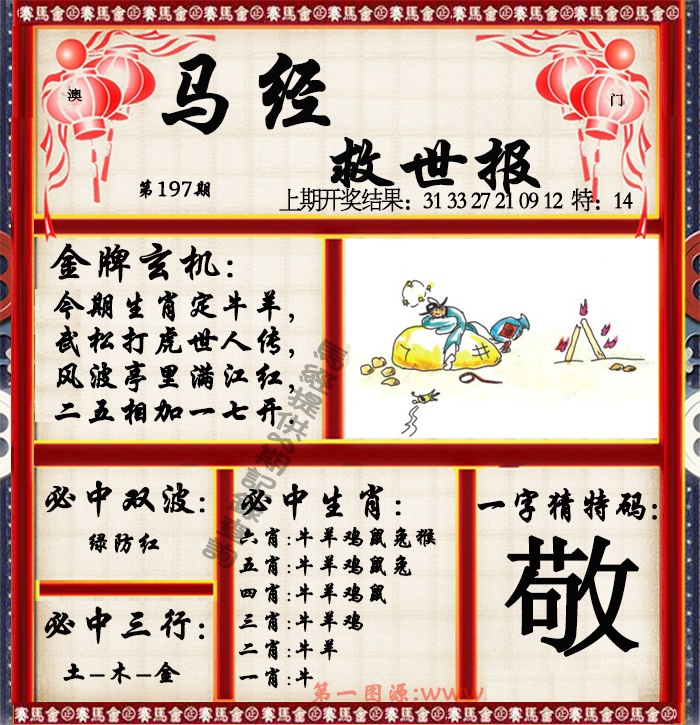 賽馬會金正賽馬會金正賽馬會金正賽馬會金正賽馬會金正賽馬會金
澳
门
马经
救世报
第197期
上期开奖结果：31 33 27 21 09 12 特：14
金牌玄机：
今期生肖定牛羊，
武松打虎世人传，
风波亭里满江红，
二五相加一七开．
必中双波：
绿防红
必中三行：
土－木－金
必中生肖：
六肖：牛羊鸡鼠兔猴
五肖：牛羊鸡鼠兔
四肖：牛羊鸡鼠
三肖：牛羊鸡
二肖：牛羊
一肖：牛
一字猜特码：
敬
第一图源：www